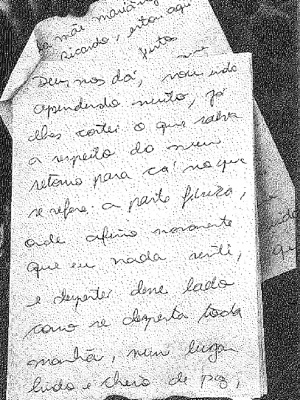 mãe
Ricardo, estou aqui
junto
Deus nos dá, vou indo
aprendendo muito, já
lhes contei o que sabia
a respeito do meu
retorno para cá no que
se refere a parte física,
onde afirmo novamente
que eu nada senti,
e despertei desse lado
como se desperta toda
manhã, num lugar
lindo e cheio de paz,